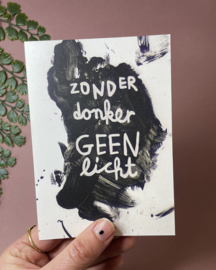 ZONDER
donker
GEEN
licht